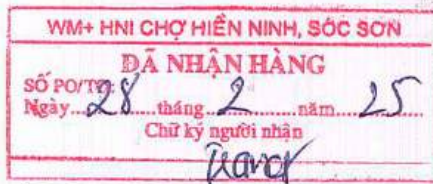 WM+ HNI CHỢ HIỀN NINH, SÓC SƠN
ĐÃ NHẬN HÀNG
SỐ PO/TO:
Ngày 28 tháng 2 năm 25
Chữ ký người nhận